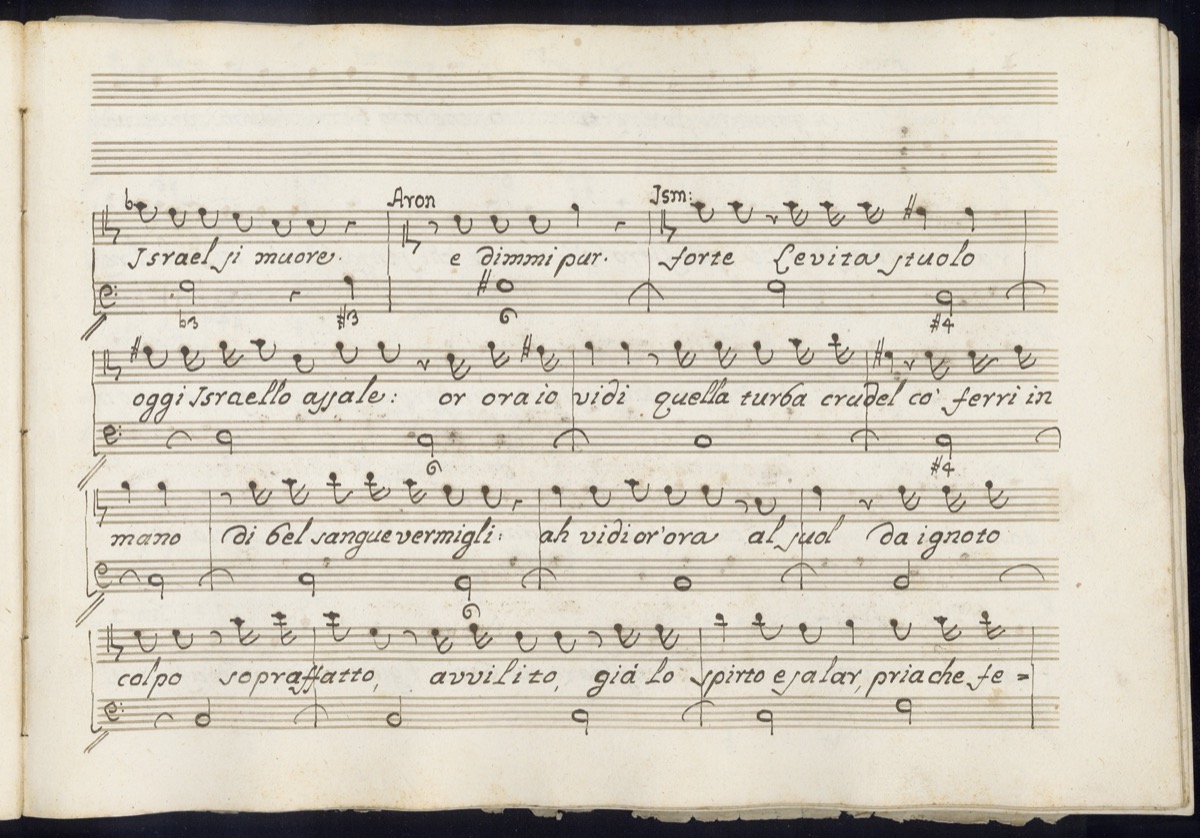 Aron Ism:
Israel si muore. e dimmi pur. forte Levita stuolo
b3 #3 6 #4
oggi Israello assale: or ora io vidi quella turba crudel co' ferri in
6 #4
mano di bel sangue vermigli: ah vidi or'ora al suol da ignoto
6
colpo sopraffatto, avvilito, giá lo spirto esalar, pria che fe =